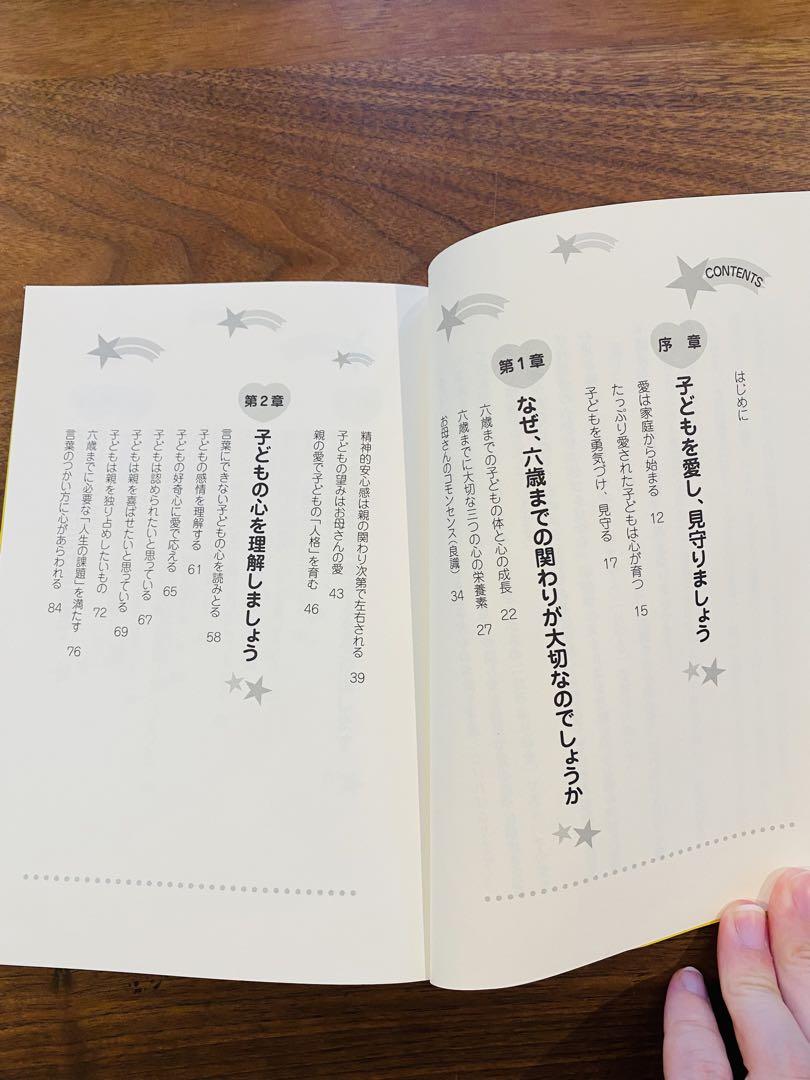 CONTENTS
はじめに
序章
子どもを愛し、見守りましょう
愛は家庭から始まる 12
たっぷり愛された子どもは心が育つ 15
子どもを勇気づけ、見守る 17
第1章
なぜ、六歳までの関わりが大切なのでしょうか
六歳までの子どもの体と心の成長 22
六歳までに大切な三つの心の栄養素 27
お母さんのコモンセンス(良識) 34
精神的安心感は親の関わり次第で左右される 39
子どもの望みはお母さんの愛 43
親の愛で子どもの「人格」を育む 46
第2章
子どもの心を理解しましょう
言葉にできない子どもの心を読みとる 58
子どもの感情を理解する 61
子どもの好奇心に愛で応える 65
子どもは認められたいと思っている 67
子どもは親を喜ばせたいと思っている 69
子どもは親を独り占めしたいもの 72
六歳までに必要な「人生の課題」を満たす 76
言葉のつかい方に心があらわれる 84